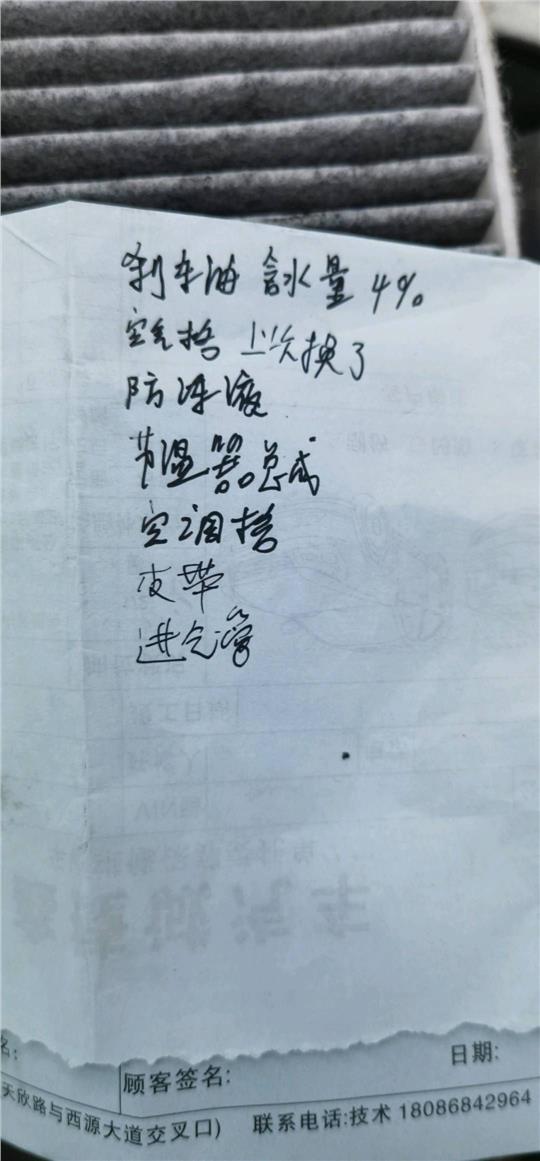 刹车油 含水量 4%
空气格 上次换了
防冻液
节温器总成
空调格
皮带
进气管
名:
顾客签名:
日期:
天欣路与西源大道交叉口)
联系电话:技术 18086842964